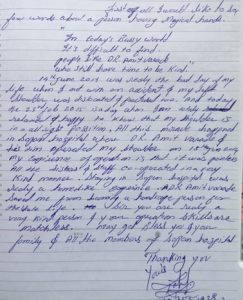 First of all I would like to say
few words about a person having magical hands.
"In today's Busy world
It's difficult to find
people like DR. Amit varak
who still have time to be kind"
14th June 2015 was really the bad day of my
life when I met with an accident & my left
shoulder was dislocated & fractured in a. And today
the 25th Feb 2015 is day when I am really
instead of happy to know that my shoulder is
in a all right position, All this miracle happened
in hospital & by Dr. Amit varak. It
has him operated my shoulder on
My experience of operation is that it was painless
All the Doctors & staff co-operated in a very
kind manner. Staying in hospital was
really a homelike experience. DR. Amit varak
saved me from being a handicap person for
whole life. Sir you are really a
very kind person & your operation skills are
matchless. May god bless you & your
family & All the members of hospital
Thanking you
Yours